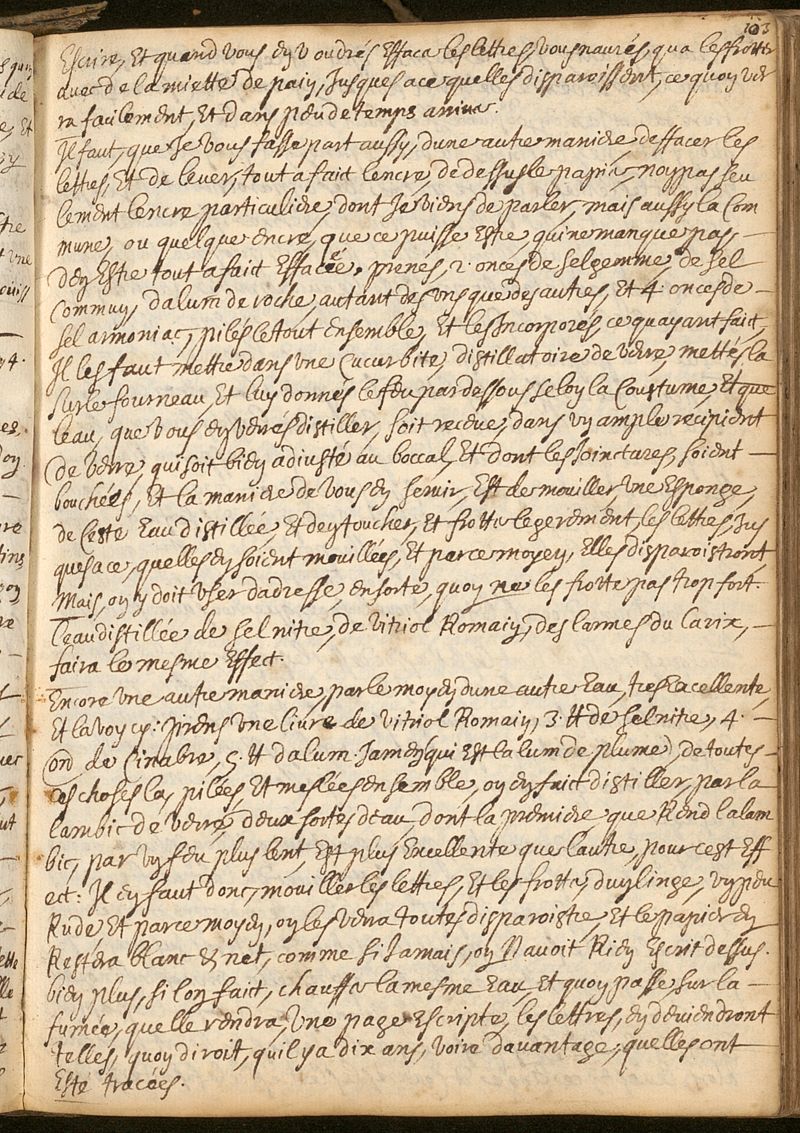 103
Escrire, Et quand vous en voudrés Effacer les lettres, vous naurés, qua les frotter
avec de la miette de pain, Jusques a ce quelles disparoissent, ce quon ver
ra facilement, Et dans peu de temps arriver.
Il faut, que Je vous fasse part aussy, dune autre maniere, deffacer les
lettres, Et de lever, tout a fait lencre, de dessus le papier, non pas seu
lement lencre particuliere, dont Je viens de parler, mais aussy la Com
mune, ou quelque encre, que ce puisse Estre, qui ne manque pas —
den Estre tout a fait Effacée. prenés, 2. onces de selgemme, de sel
Commun, dalum de roche, autant des uns que des autres, Et 4. onces de —
sel armoniac, pilés le tout Ensemble, Et les Incorporés, ce quayant fait,
Il les faut mettre dans une Cucurbite, distillatoire de verre, mettés la
sur le fourneau, Et luy donnés le feu par dessous selon la Coustume, Et que
leau, que vous en verrés distiller, soit receue, dans un ample recipient
de verre, qui soit bien adiusté au boccal, Et dont les Joinctures, soient —
bouchées, Et la maniere de vous en servir, Est de mouiller une Esponge,
de Ceste Eau distillée, Et den toucher, Et frotter legerement, les lettres, Jus
ques a ce, quelles en soient mouillées, Et par ce moyen, Elles disparoistront,
Mais, on y doit user dadresse, en sorte, quon ne les frotte pas trop fort.
Leau distillée de sel nitre, de vitriol Romain, des larmes du Larix, —
faira le mesme Effect.
Encore une autre maniere, par le moyen dune autre Eau, tres Excellente,
Et la voycy: prens une livre de vitriol Romain, 3. ℔ de sel nitre, 4. —
on de Cinabre, 5. ℔ dalum Jamen (qui est lalum de plume), de toutes —
ces choses la, pilées Et meslées ensemble, on en fait distiller, par la
lambic de verre, deux sortes deau, dont la premiere, que Rend lalam
bic, par un feu plus lent, Est plus Excellente que lautre, pour cest Eff
ect: Il en faut donc, mouiller les lettres, Et les frotter, dun linge, un peu
Rude Et par ce moyen, on les verra toutes disparoistre, Et le papier en
Restera blanc & net, comme si Jamais, on Navoit Rien Escrit dessus.
bien plus, si lon fait, chauffer la mesme Eau Et quon passe, sur la —
fumée, quelle rendra, une page Escripte, les lettres, en deviendront
telles, quon diroit, quil y a dix ans, voire davantage, quelles ont
Esté tracées.